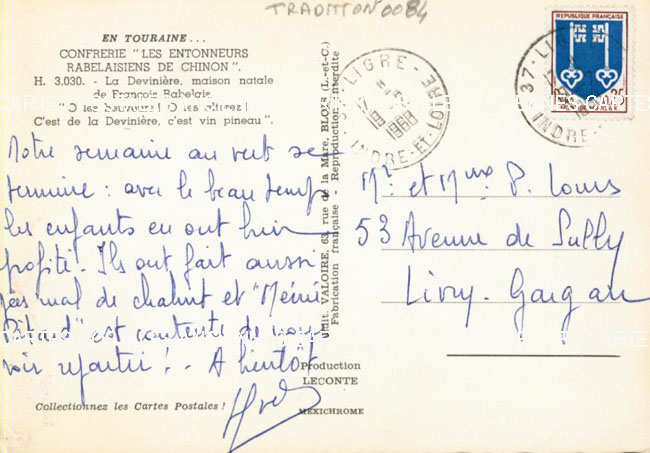 TRADITION0084
EN TOURAINE...
CONFRERIE "LES ENTONNEURS
RABELAISIENS DE CHINON".
H. 3.030. - La Devinière, maison natale
de François Rabelais.
C'est de la Devinière, c'est vin pineau".
Notre semaine au vert se
termine : avec le beau temps
les enfants en ont bien
profité. Ils ont fait aussi
pas mal de chahut et "Mémé
est contente de nous
voir repartir ! - A bientôt
Collectionnez les Cartes Postales !
Edit. VALOIRE, 63, rue de la Mare, BLOIS (L.-et-C.)
Fabrication française - Reproduction interdite
Production
LECONTE
MEXICHROME
37 - LIGRE -
17
1968
INDRE-ET-LOIRE
37 - LIGRE
INDRE-
REPUBLIQUE FRANÇAISE
Mr et Mme P. Louis
53 Avenue de Sully
Livry-Gargan